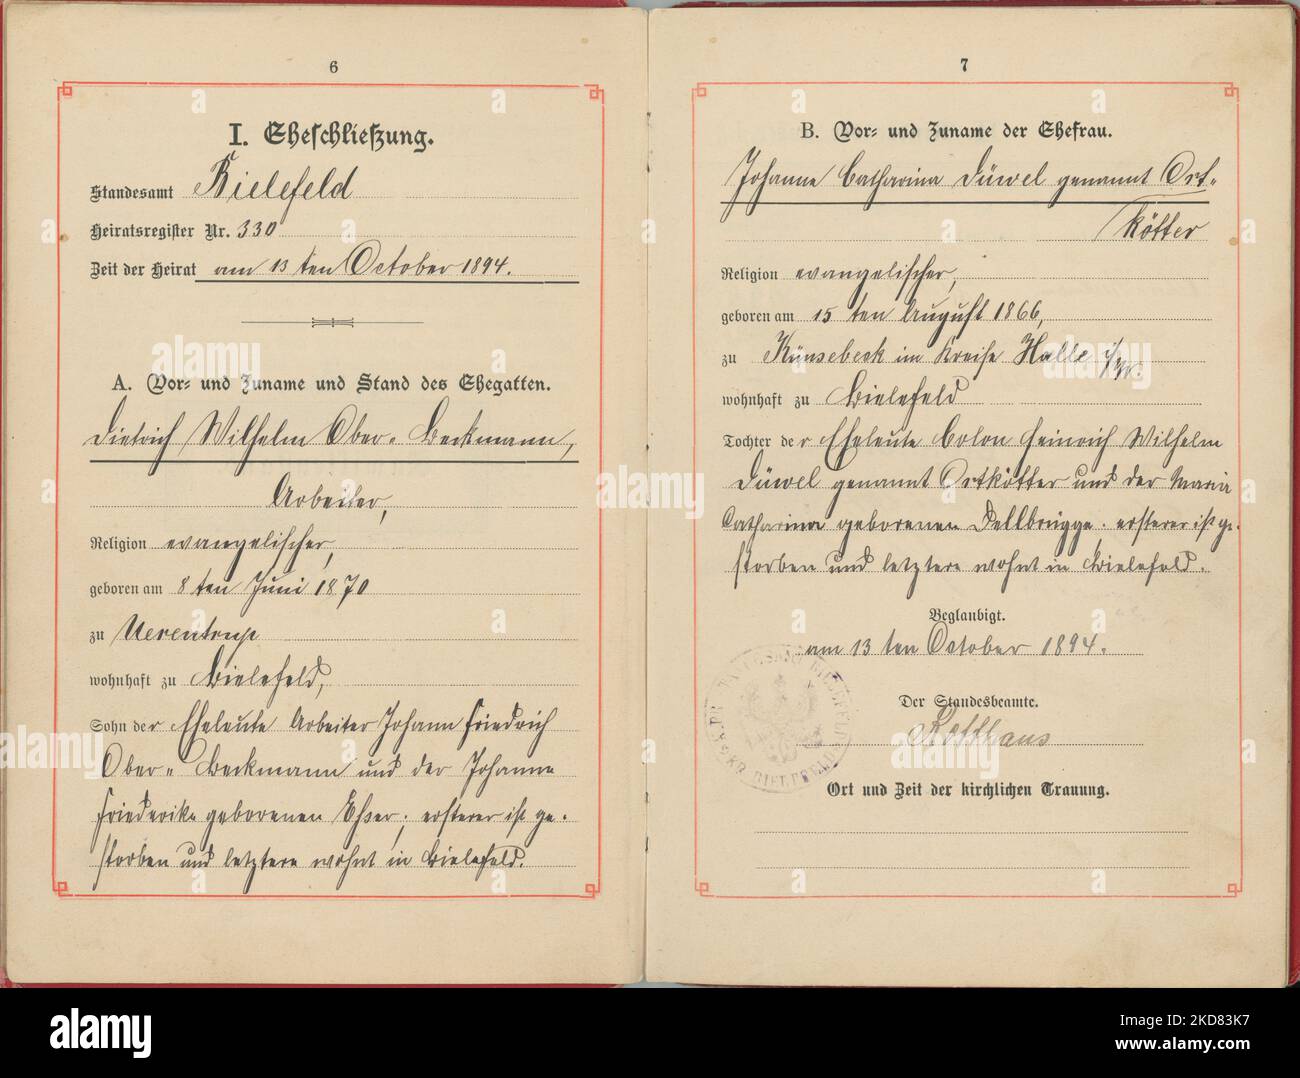 6
I. Eheschließung.
Standesamt Bielefeld
Heiratsregister Nr. 330
Zeit der Heirat am 13ten October 1894.
A. Vor- und Zuname und Stand des Ehegatten.
Dietrich Wilhelm Ober-Beckmann,
Arbeiter,
Religion evangelischer,
geboren am 8ten Juni 1870
zu Uerentrup
wohnhaft zu Bielefeld,
Sohn der Eheleute Arbeiter Johann Friedrich
Ober-Beckmann und der Johanne
Friederike geborenen Eßer; ersterer ist ge-
storben und letztere wohnt in Bielefeld.
7
B. Vor- und Zuname der Ehefrau.
Johanne Catharina Düwel genannt Ort-
kötter
Religion evangelischer,
geboren am 15ten August 1866,
zu Künsebeck im Kreise Halle i/W.
wohnhaft zu Bielefeld
Tochter der Eheleute Colon Heinrich Wilhelm
Düwel genannt Ortkötter und der Maria
Catharina geborenen Dellbrügge; ersterer ist ge-
storben und letztere wohnt in Bielefeld.
Beglaubigt.
am 13ten October 1894.
Der Standesbeamte.
Ort und Zeit der kirchlichen Trauung.
alamy
Image ID: 2KD83K7
www.alamy.com